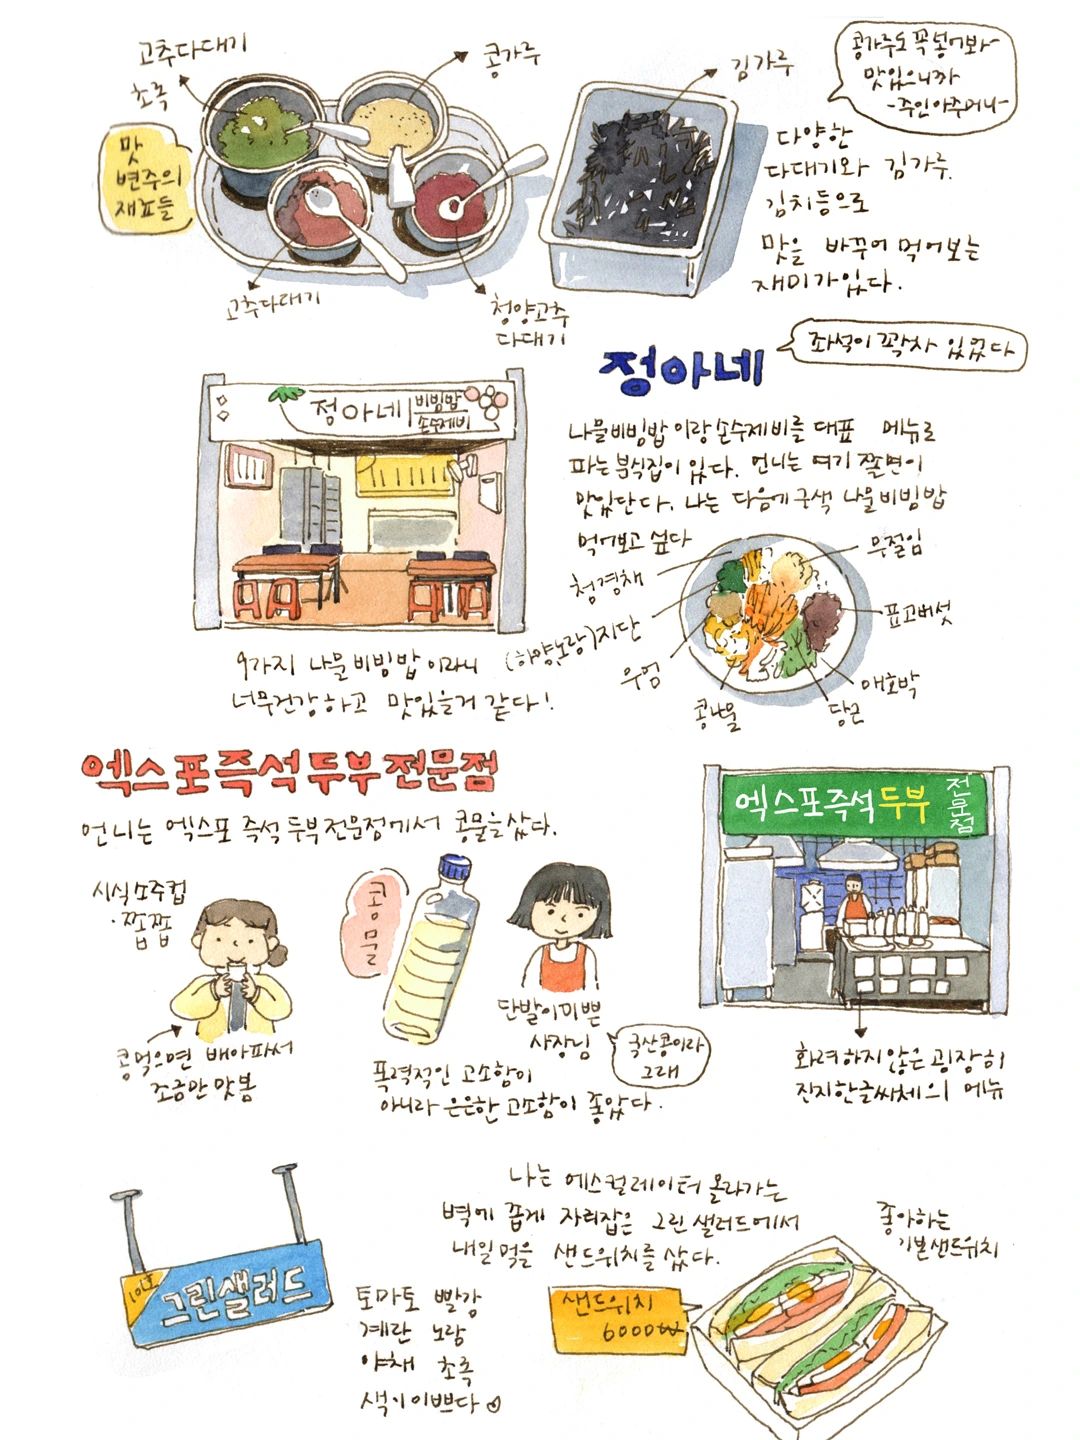 고추다대기
초록
콩가루
김가루
콩가루도 꼭 넣어봐~
맛있으니까
-주인아주머니-
맛
변주의
재료들
다양한
다대기와 김가루.
김치등으로
맛을 바꾸어 먹어보는
재미가있다.
고추다대기
청양고추
다대기
정아네
좌석이 꽉차 있었다
정아네 비빔밥
손수제비
나물비빔밥이랑 손수제비를 대표 메뉴로
파는 분식집이 있다. 언니는 여기 쫄면이
맛있단다. 나는 다음에 구색 나물비빔밥
먹어보고 싶다
무절임
청경채
표고버섯
(하양,노랑)지단
우엉
콩나물
당근
애호박
9가지 나물비빔밥이라니
너무건강하고 맛있을거 같다!
엑스포즉석두부전문점
언니는 엑스포 즉석두부전문점에서 콩물을 샀다.
엑스포즉석두부 전문점
시식소주컵
·쫩쫩
콩물
단발이이쁜
사장님
국산콩이라
그래
콩먹으면 배아파서
조금만 맛봄
폭력적인 고소함이
아니라 은은한 고소함이 좋았다.
화려하지않은 굉장히
진지한글씨체의 메뉴
나는 에스컬레이터 올라가는
벽에 좁게 자리잡은 그린샐러드에서
내일먹을 샌드위치를 샀다.
좋아하는
기본샌드위치
101호
그린샐러드
토마토 빨강
계란 노랑
야채 초록
색이이쁘다
샌드위치
6000₩